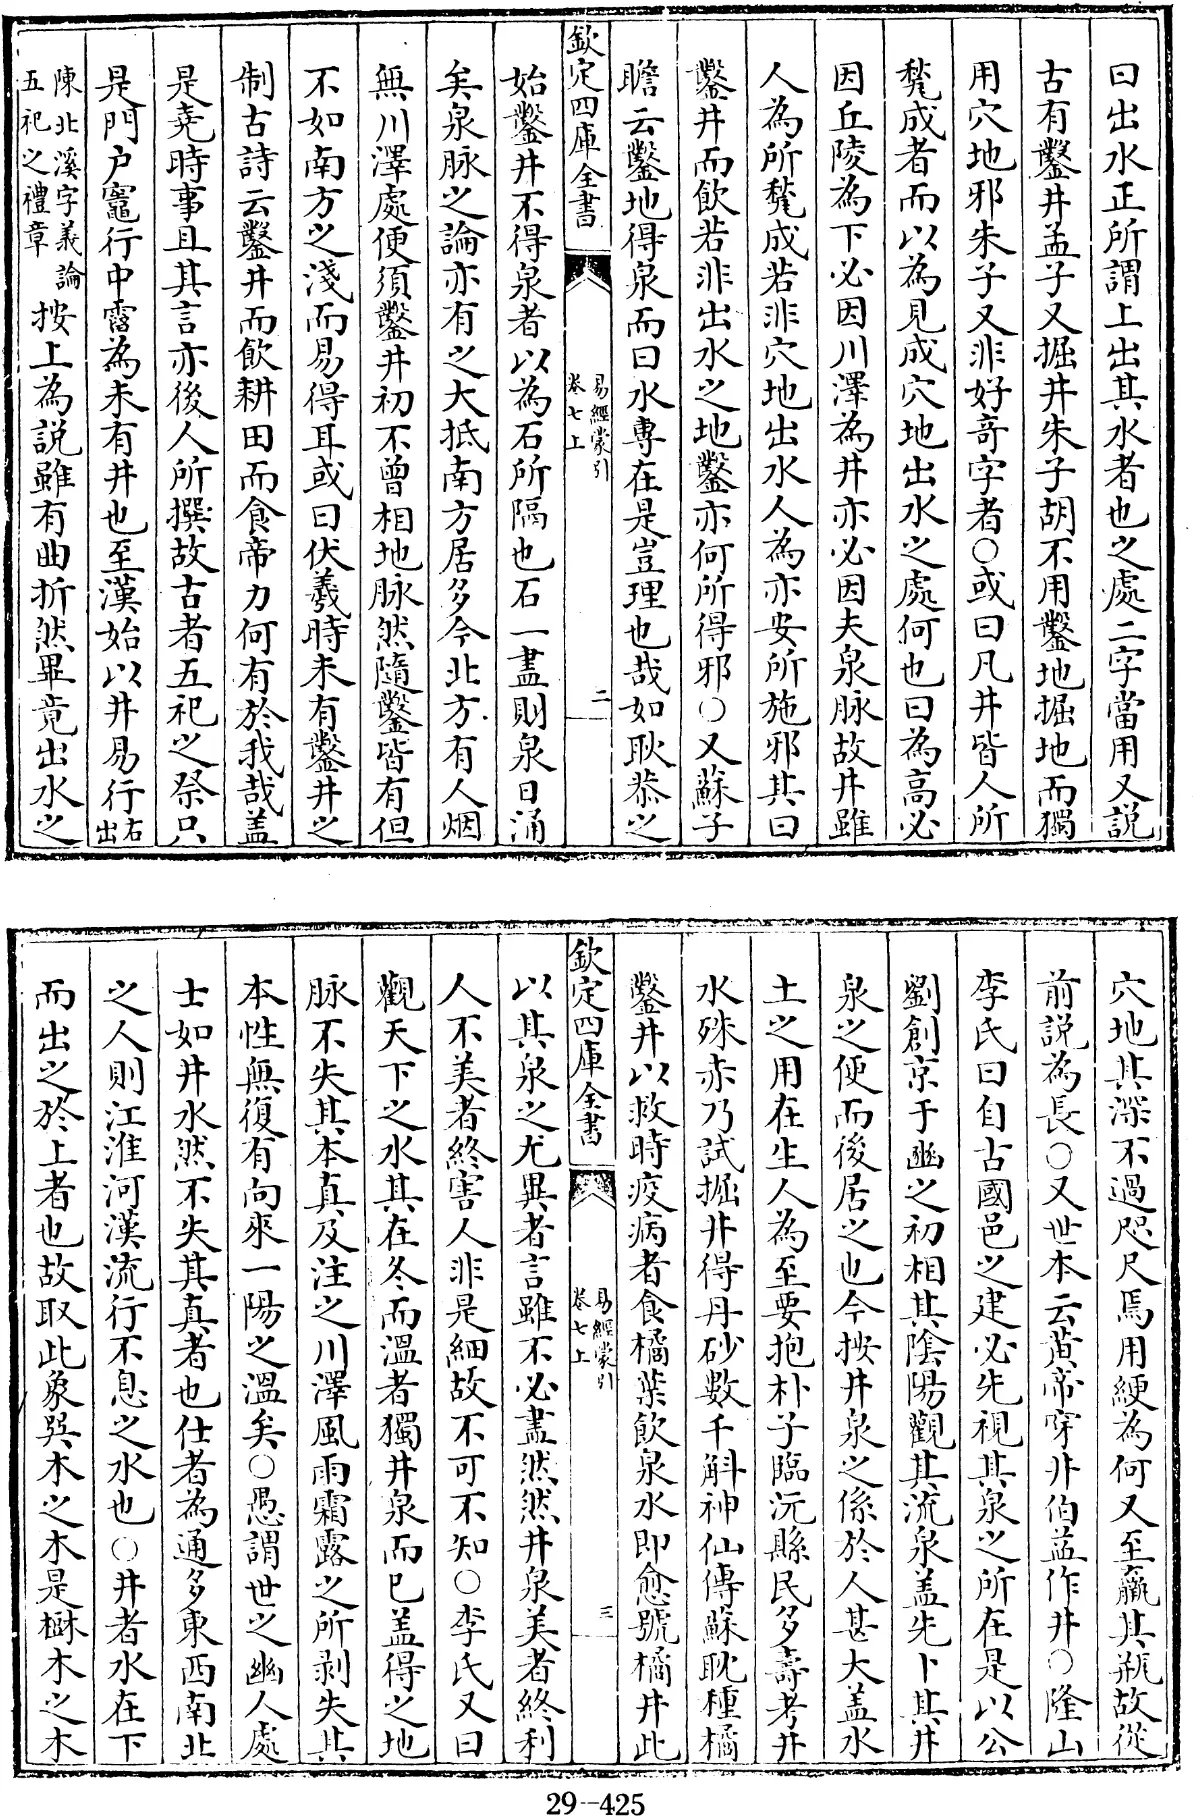 曰出水正所謂上出其水者也之處二字當用又說
古有鑿井孟子又掘井朱子胡不用鑿地掘地而獨
用穴地邪朱子又非好奇字者○或曰凡井皆人所
甃成者而以為見成穴地出水之處何也曰為高必
因丘陵為下必因川澤為井亦必因夫泉脉故井雖
人為所甃成若非穴地出水人為亦安所施邪其曰
鑿井而飲若非出水之地鑿亦何所得邪○又蘇子
瞻云鑿地得泉而曰水專在是豈理也哉如耿恭之
欽定四庫全書
易經蒙引
卷七上
二
始鑿井不得泉者以為石所隔也石一盡則泉日涌
矣泉脉之論亦有之大抵南方居多今北方有人烟
無川澤處便須鑿井初不曾相地脉然隨鑿皆有但
不如南方之淺而易得耳或曰伏羲時未有鑿井之
制古詩云鑿井而飲耕田而食帝力何有於我哉盖
是堯時事且其言亦後人所撰故古者五祀之祭只
是門户竈行中霤為未有井也至漢始以井易行右出
陳北溪字義論
五祀之禮章
按上為說雖有曲折然畢竟出水之
穴地其深不過咫尺焉用綆為何又至羸其瓶故從
前説為長○又世本云黃帝穿井伯益作井○隆山
李氏曰自古國邑之建必先視其泉之所在是以公
劉創京于豳之初相其陰陽觀其流泉盖先卜其井
泉之便而後居之也今按井泉之係於人甚大盖水
土之用在生人為至要抱朴子臨沅縣民多壽考井
水殊赤乃試掘井得丹砂數千斛神仙傳蘇耽種橘
鑿井以救時疫病者食橘葉飲泉水即愈號橘井此
欽定四庫全書
易經蒙引
卷七上
三
以其泉之尤異者言雖不必盡然然井泉美者終利
人不美者終害人非是細故不可不知○李氏又曰
觀天下之水其在冬而溫者獨井泉而已盖得之地
脉不失其本真及注之川澤風雨霜露之所剥失其
本性無復有向來一陽之溫矣○愚謂世之幽人處
士如井水然不失其真者也仕者為通多東西南北
之人則江淮河漢流行不息之水也○井者水在下
而出之於上者也故取此象巽木之木是樹木之木
29--425